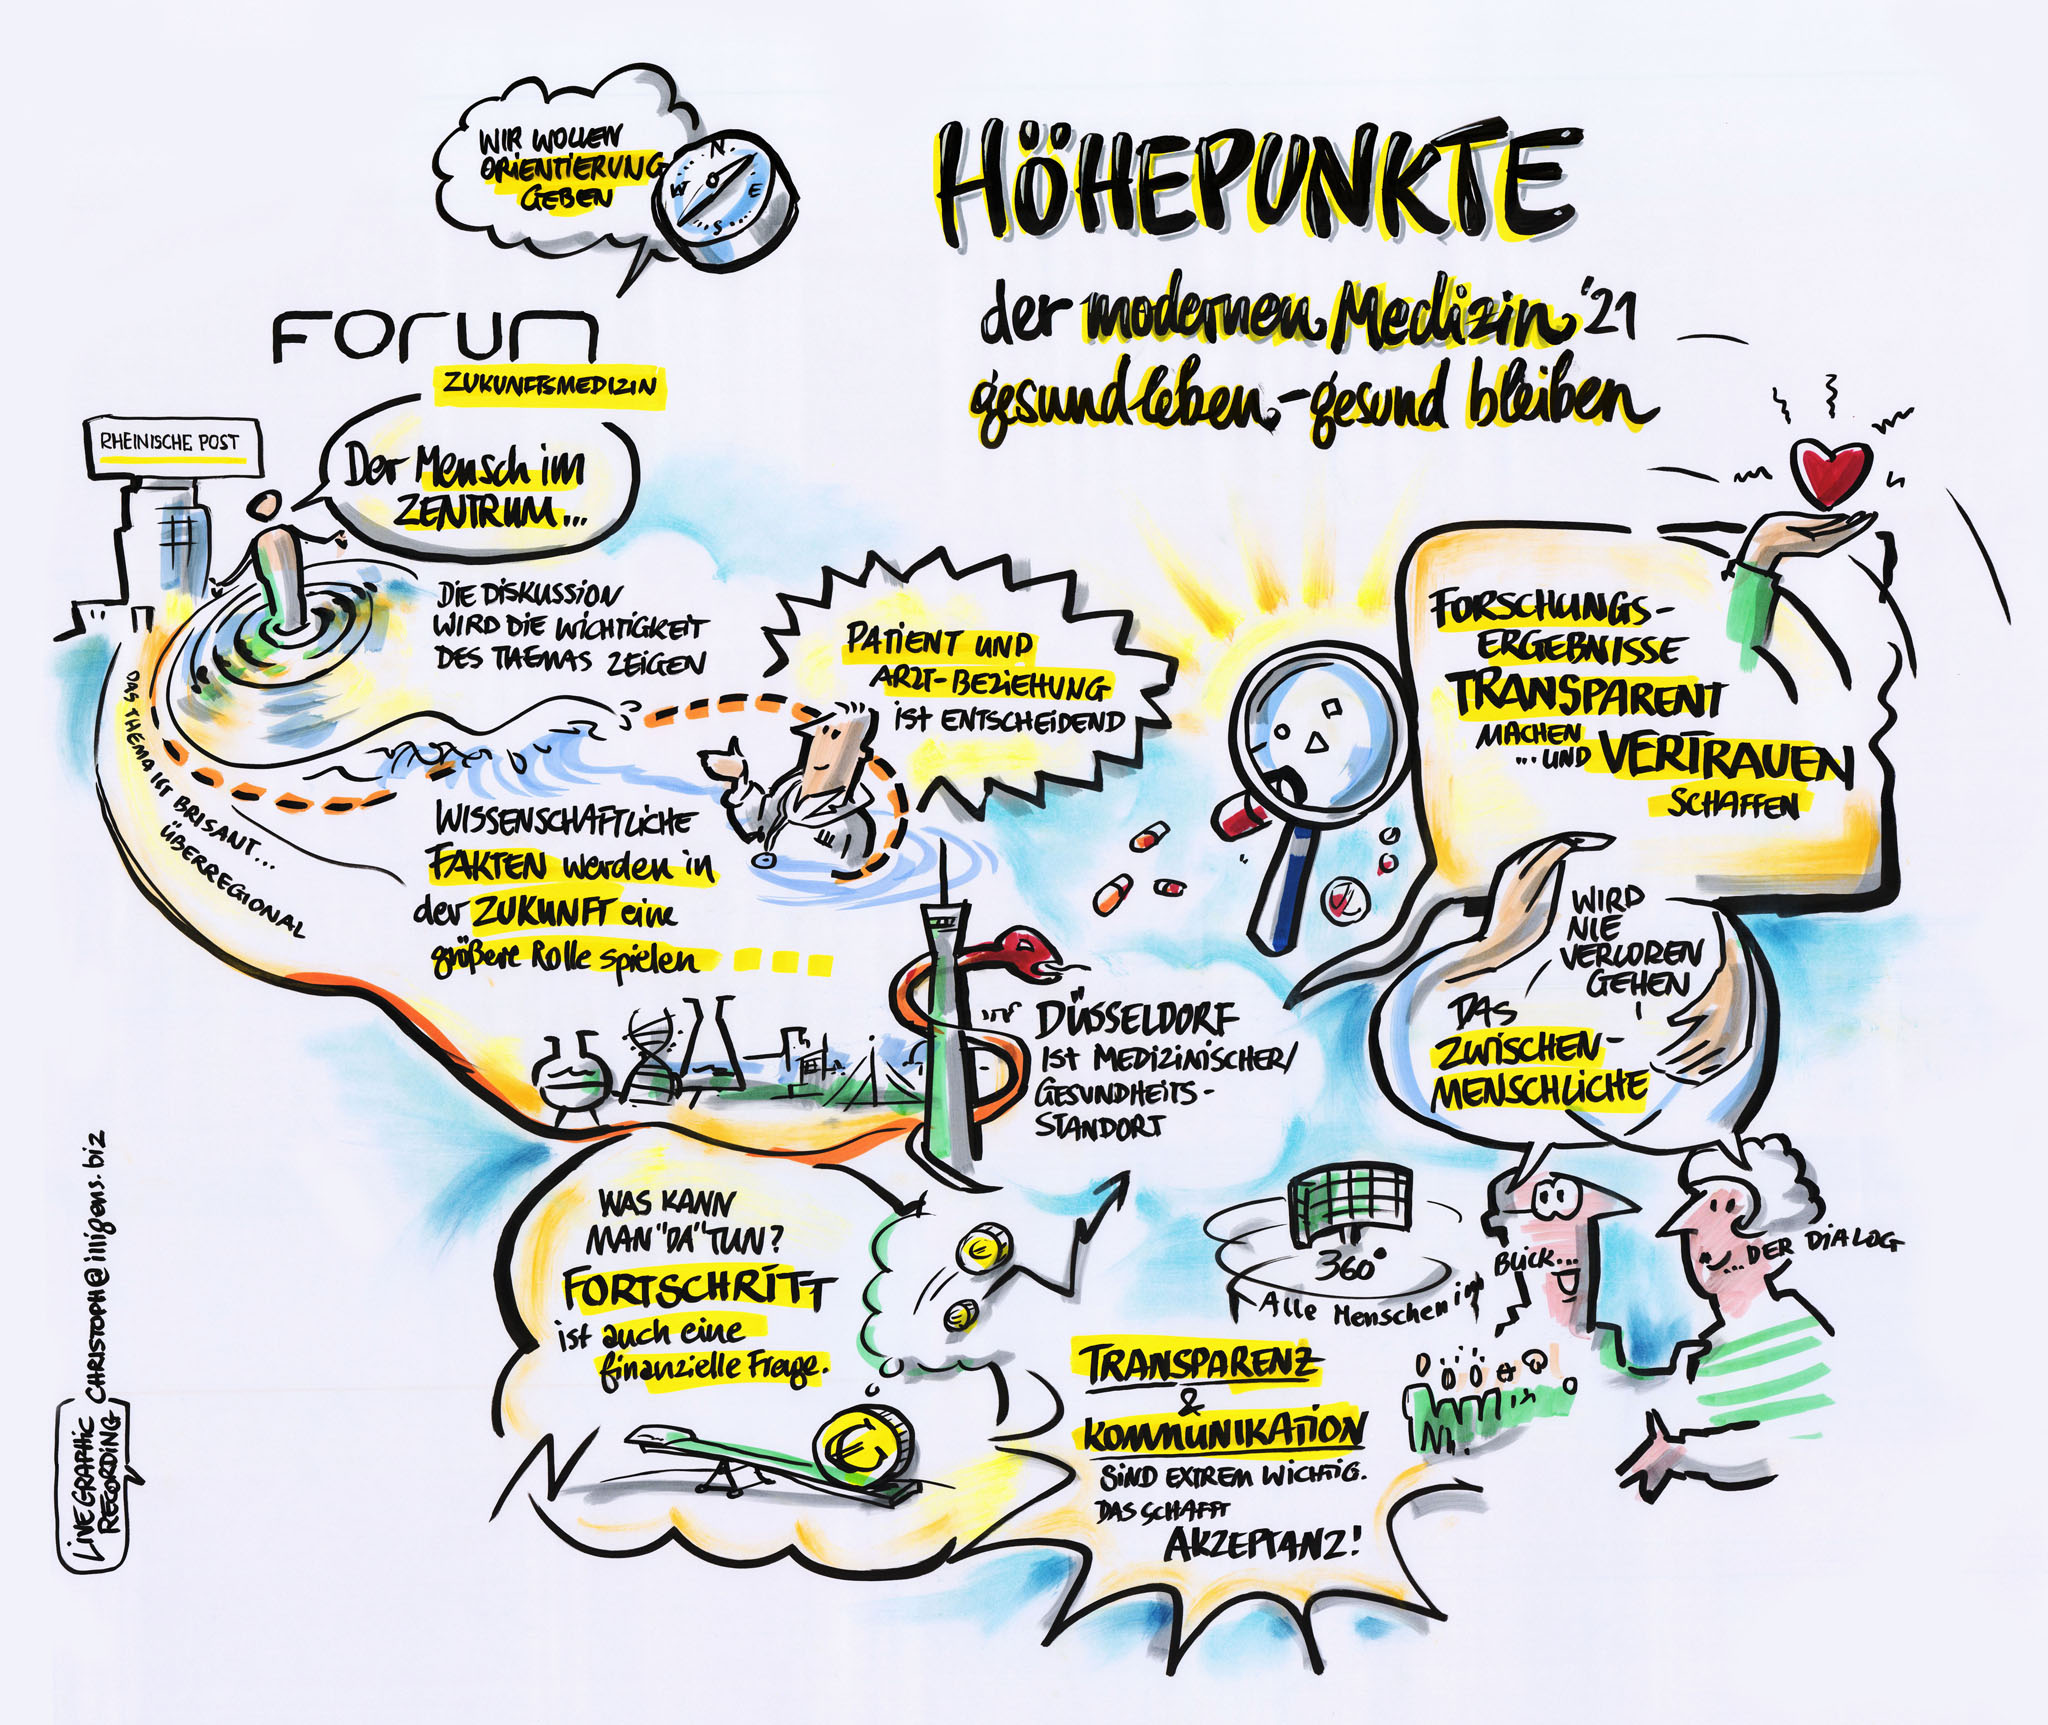 HÖHEPUNKTE
der modernen Medizin '21
gesund leben - gesund bleiben
WIR WOLLEN
ORIENTIERUNG
GEBEN
N
W
E
S
FORUM
ZUKUNFTSMEDIZIN
RHEINISCHE POST
Der Mensch im
ZENTRUM...
DIE DISKUSSION
WIRD DIE WICHTIGKEIT
DES THEMAS ZEIGEN
DAS THEMA IST BRISANT...
ÜBERREGIONAL
PATIENT UND
ARZT-BEZIEHUNG
IST ENTSCHEIDEND
WISSENSCHAFTLICHE
FAKTEN werden in
der ZUKUNFT eine
größere Rolle spielen
DÜSSELDORF
IST MEDIZINISCHER/
GESUNDHEITS-
STANDORT
FORSCHUNGS-
ERGEBNISSE
TRANSPARENT
MACHEN
...UND VERTRAUEN
SCHAFFEN
WIRD
NIE
VERLOREN
GEHEN!
DAS
ZWISCHEN-
MENSCHLICHE
WAS KANN
MAN "DA" TUN?
FORTSCHRITT
ist auch eine
finanzielle Frage.
€
€
€
360°
Alle Menschen im
BLICK...
...DER DIALOG
TRANSPARENZ
&
KOMMUNIKATION
SIND EXTREM WICHTIG.
DAS SCHAFFT
AKZEPTANZ!
LIVE GRAPHIC
RECORDING
CHRISTOPH@illigens.biz